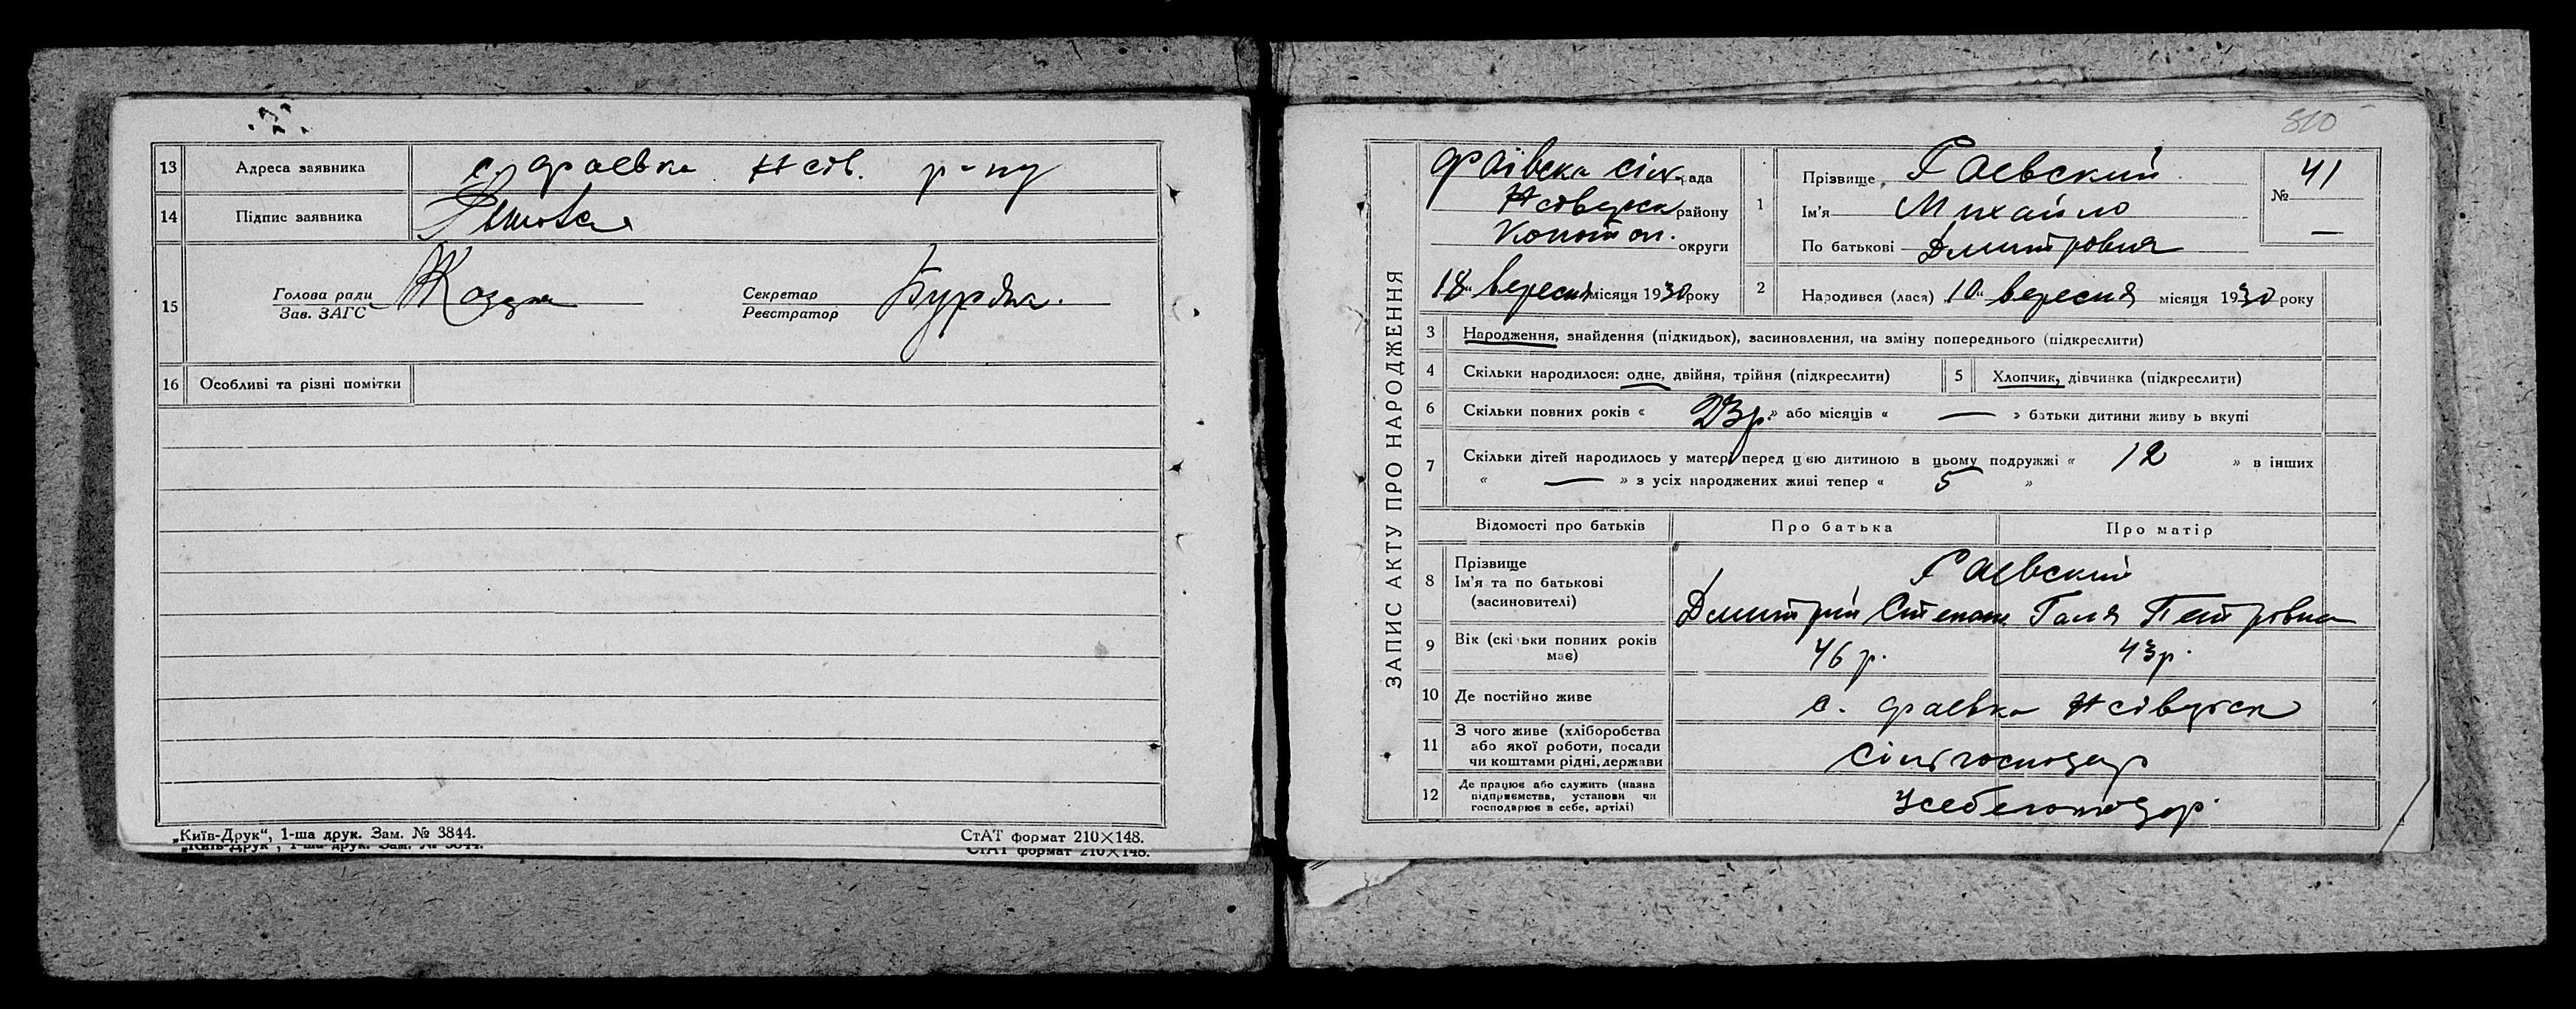 13 Адреса заявника с. Фаевка Н сів. р-ну
14 Підпис заявника
15 Голова ради Зав. ЗАГС Секретар Реєстратор
16 Особливі та різні помітки
„Київ-Друк“, 1-ша друк. Зам. № 3844. СтАТ формат 210×148.
„Київ-Друк“, 1-ша друк. Зам. № 3844. СтАТ формат 210×148.
810
ЗАПИС АКТУ ПРО НАРОДЖЕННЯ
Фаївска сіл. рада
району
Конотоп. округи
18 вересня місяця 1930 року
1 Прізвище Гаевский
Ім'я Михайло
По батькові Дмитровия
№ 41 —
2 Народився (лася) „10“ вересня місяця 1930 року
3 Народження, знайдення (підкидьок), засиновлення, на зміну попереднього (підкреслити)
4 Скільки народилося: одне, двійня, трійня (підкреслити) 5 Хлопчик, дівчинка (підкреслити)
6 Скільки повних років « 23 р. » або місяців « — » батьки дитини живу ь вкупі
7 Скільки дітей народилось у матері перед цією дитиною в цьому подружжі « 12 » в інших
« — » з усіх народжених живі тепер « 5 »
Відомості про батьків Про батька Про матір
8 Прізвище Ім'я та по батькові (засиновителі)
Гаевский
Дмитрий Степан Галя Петровна
9 Вік (скі ьки повних років має) 46 р. 43 р.
10 Де постійно живе с. Фаевка
11 З чого живе (хліборобства або якої роботи, посади чи коштами рідні, держави сільгосподар
12 Де працює або служить (назва підприємства, установи чи господарює в себе, артілі)